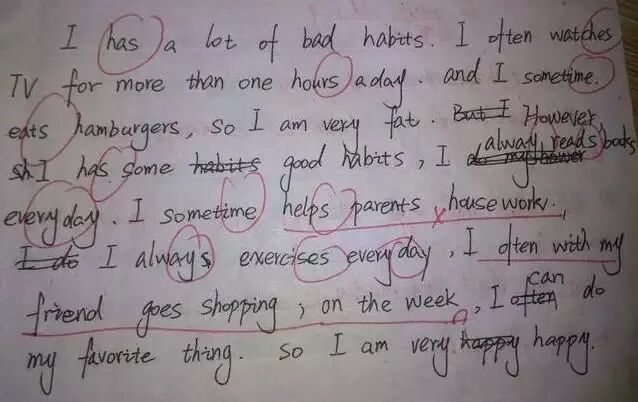 I has a lot of bad habits. I often watches
TV for more than one hours a day. and I sometime.
eats hamburgers, so I am very fat. But I However,
sh I has some habits good habits, I do my hower alway reads books
everyday. I sometime helps parents housework.,
I do I always exercises everyday, I often with my
friend goes shopping, on the week, I often can do
my favorite thing. so I am very happy happy.